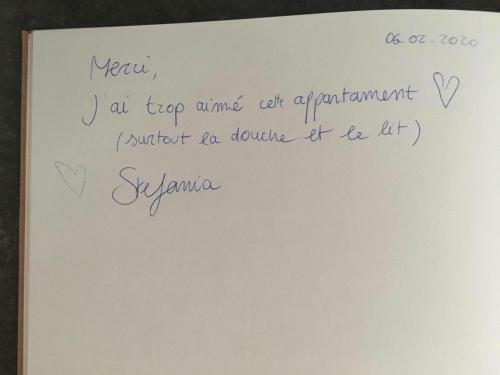 06-02-2020
Merci,
J'ai trop aimé cette appartament
(surtout la douche et le lit)
Stefania